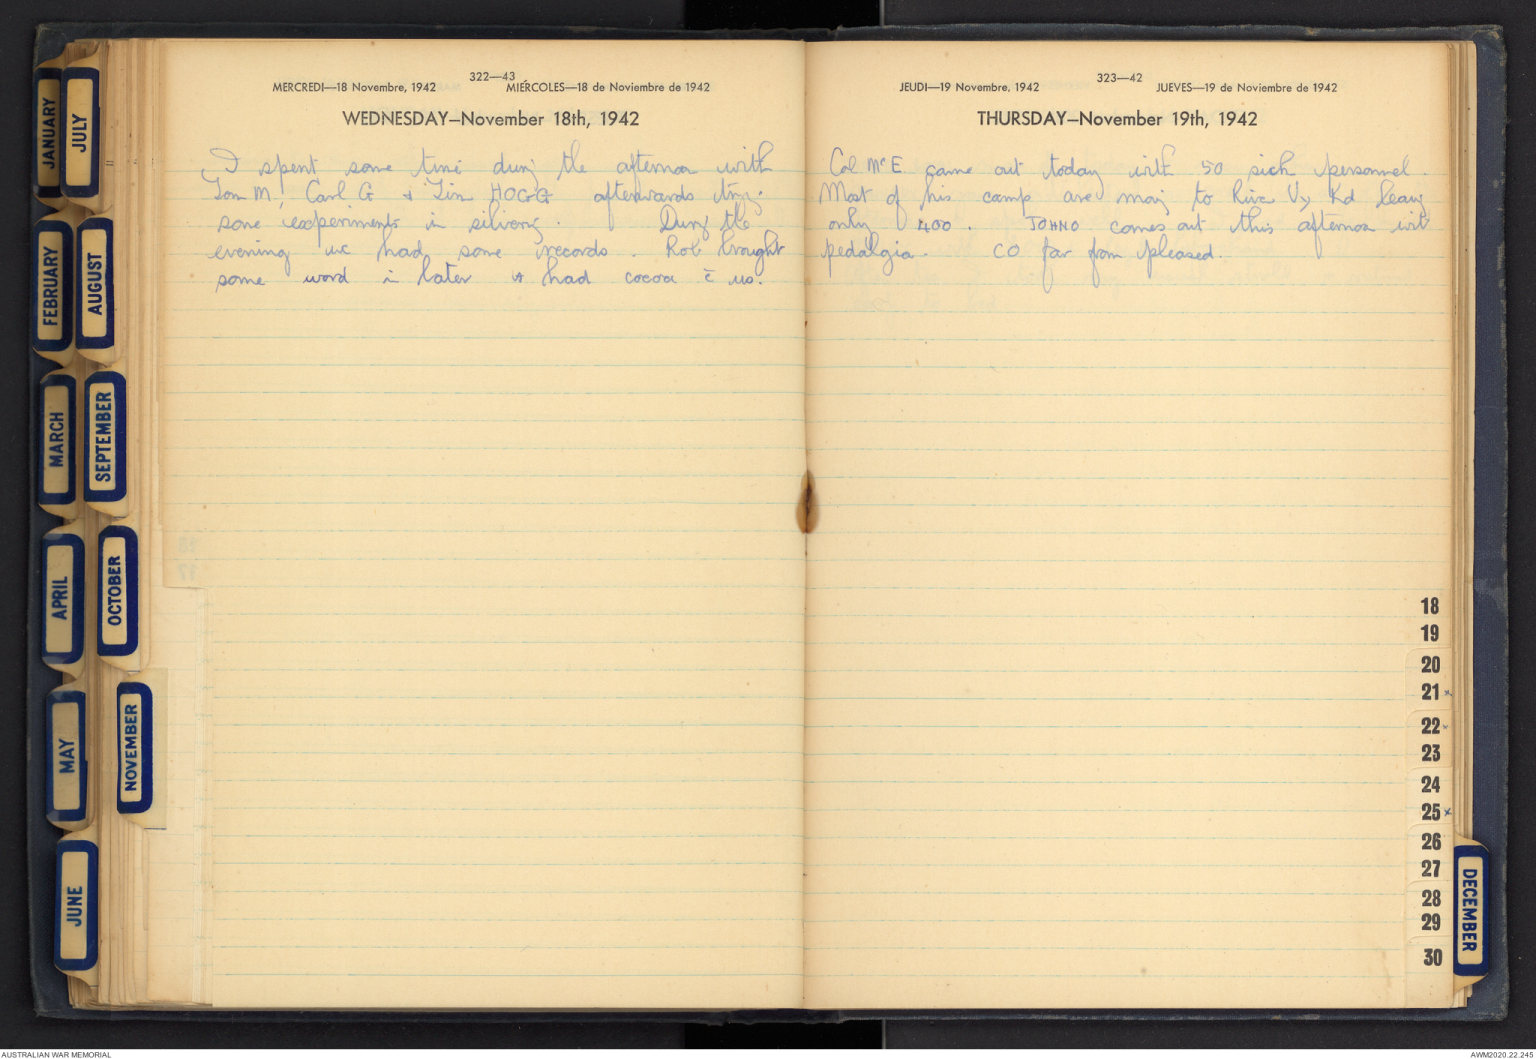 322—43
MERCREDI—18 Novembre, 1942 MIÉRCOLES—18 de Noviembre de 1942
WEDNESDAY—November 18th, 1942
I spent some time durig the afternoon with
Tom M, Carl G & Jim HOGG afterwards tryg
some experiments in silverg. Durg the
evening we had some records. Rob brought
some word in later & had cocoa c̄ us.
323—42
JEUDI—19 Novembre, 1942 JUEVES—19 de Noviembre de 1942
THURSDAY—November 19th, 1942
Col McE came out today with 50 sick personnel.
Most of his camp are movg to River Vy Rd leavg
only 400. JOHNO comes out this afternoon with
pedalgia. CO far from pleased.
JANUARY
JULY
FEBRUARY
AUGUST
MARCH
SEPTEMBER
APRIL
OCTOBER
MAY
NOVEMBER
JUNE
18
19
20
21 x
22 x
23
24
25 x
26
27
28
29
30
DECEMBER
AUSTRALIAN WAR MEMORIAL
AWM2020.22.248